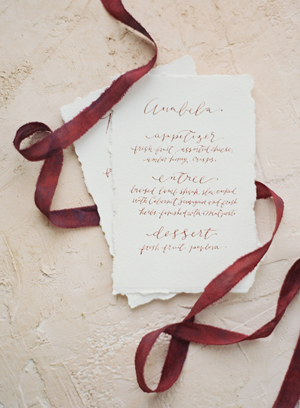 Annabela
appetizer
fresh fruit, assorted cheese,
entree
braised lamb shank slow cooked
with Cabernet Sauvignon and fresh
herbs finished with
dessert
fresh fruit, pavlova